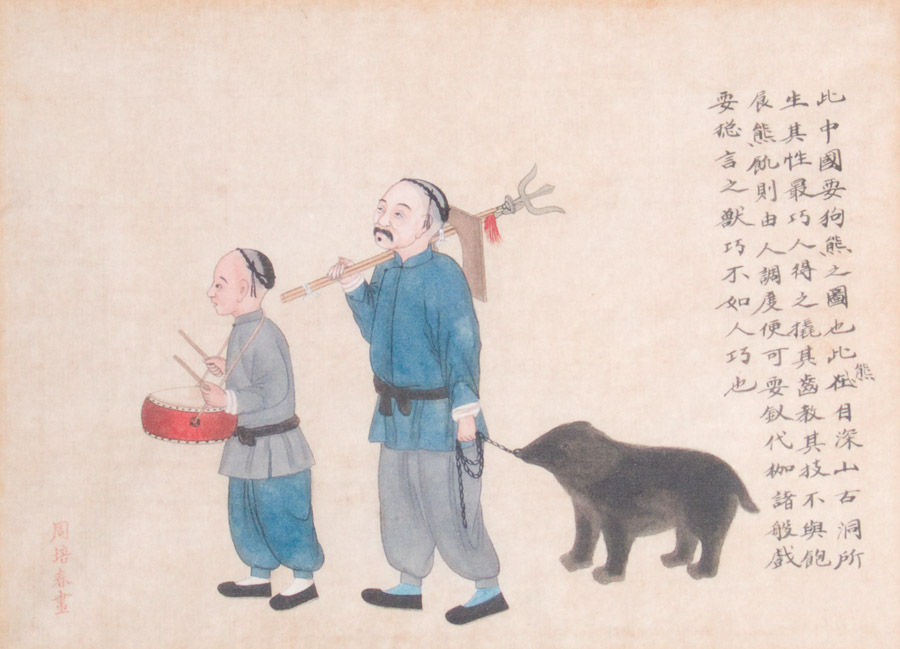 此中國耍狗熊之圖也此熊在自深山石洞所
生其性最巧人得之撬其齒教其技不與飽
食熊飢則由人調度便可耍釵代枷諸般戲
耍總言之獸巧不如人巧也
周培春畫